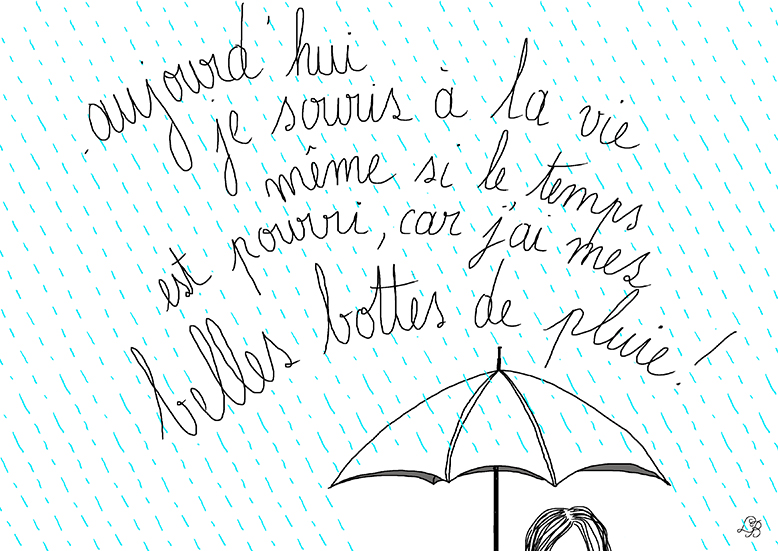 aujourd'hui
je souris à la vie
même si le temps
est pourri, car j'ai mes
belles bottes de pluie!